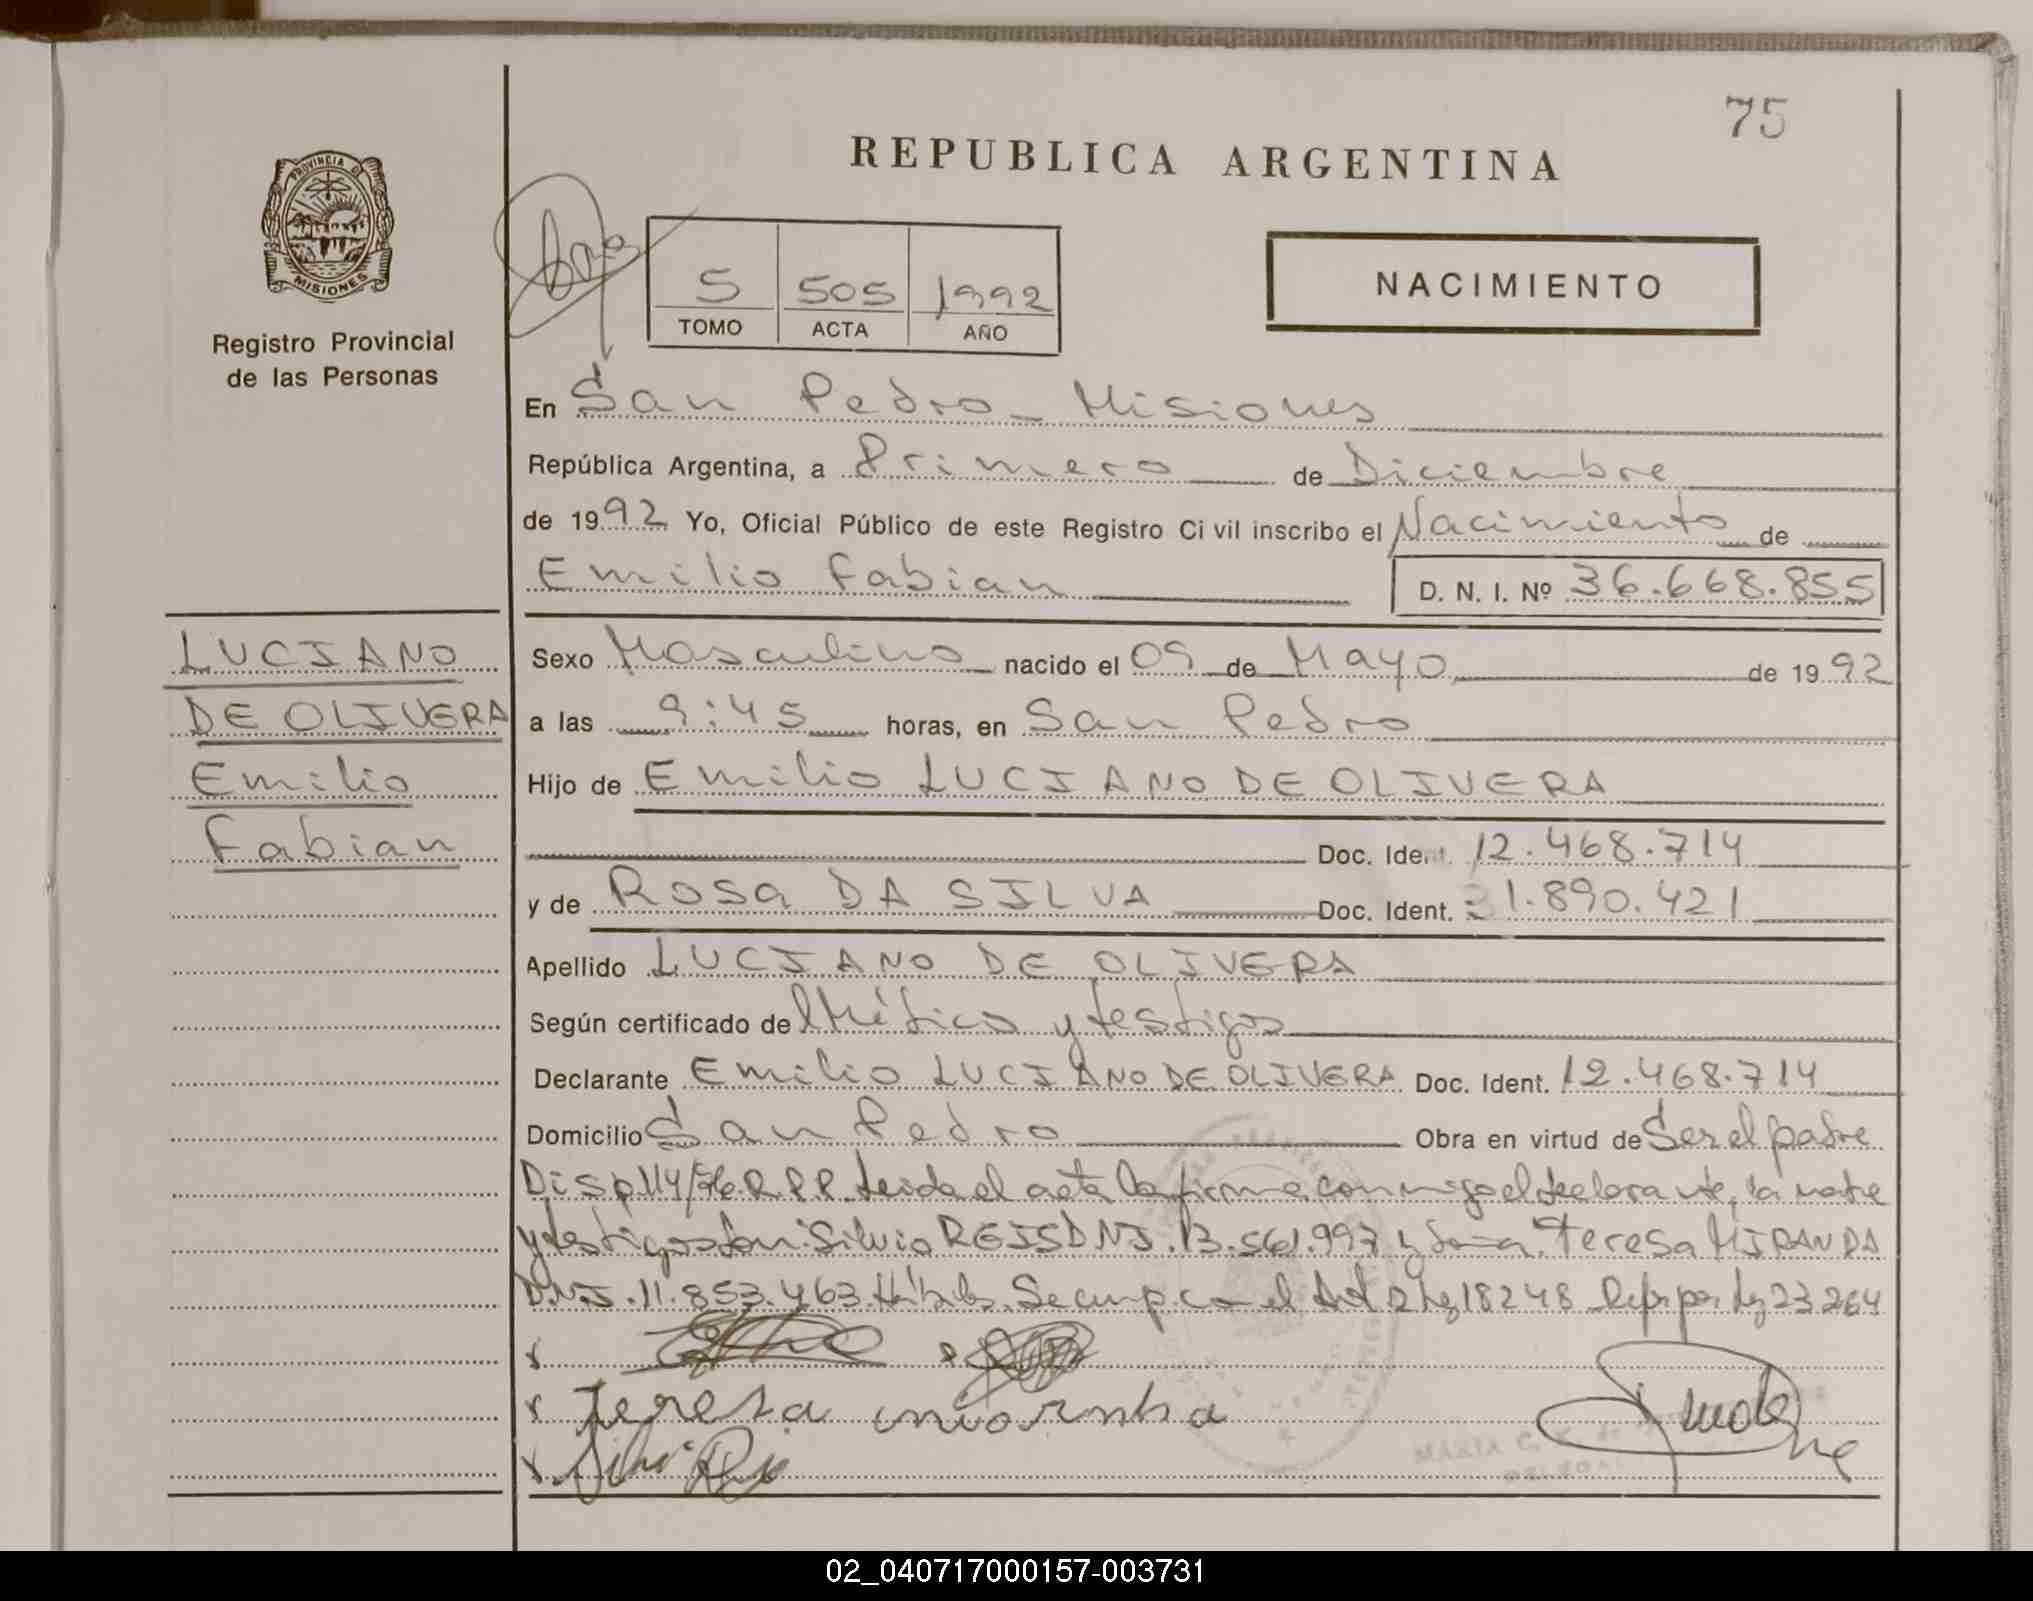 75
REPUBLICA ARGENTINA
PROVINCIA DE
MISIONES
Registro Provincial
de las Personas
5 505 1992
TOMO ACTA AÑO
NACIMIENTO
En San Pedro - Misiones
República Argentina, a Primero de Diciembre
de 1992 Yo, Oficial Público de este Registro Civil inscribo el Nacimiento de
Emilio Fabian D. N. I. Nº 36.668.855
LUCIANO
DE OLIVERA
Emilio
Fabian
Sexo Masculino nacido el 09 de Mayo de 1992
a las 9:45 horas, en San Pedro
Hijo de Emilio LUCIANO DE OLIVERA
Doc. Ident. 12.468.714
y de ROSA DA SILVA Doc. Ident. 31.890.421
Apellido LUCIANO DE OLIVERA
Según certificado de Médico y testigos
Declarante Emilio LUCIANO DE OLIVERA Doc. Ident. 12.468.714
Domicilio San Pedro Obra en virtud de Ser el padre
Disp. 114/76 R.P.P. Leida el acta la firma conmigo el declarante, la madre
y testigos don: Silvio REIS DNI. 13.561.997 y doña Teresa MIRANDA
D.N.I. 11.853.463 Hábiles. Se cump. con el Art 2 Ley 18248 Ley 23264
x
x Teresa
x
MARIA C.
02_040717000157-003731